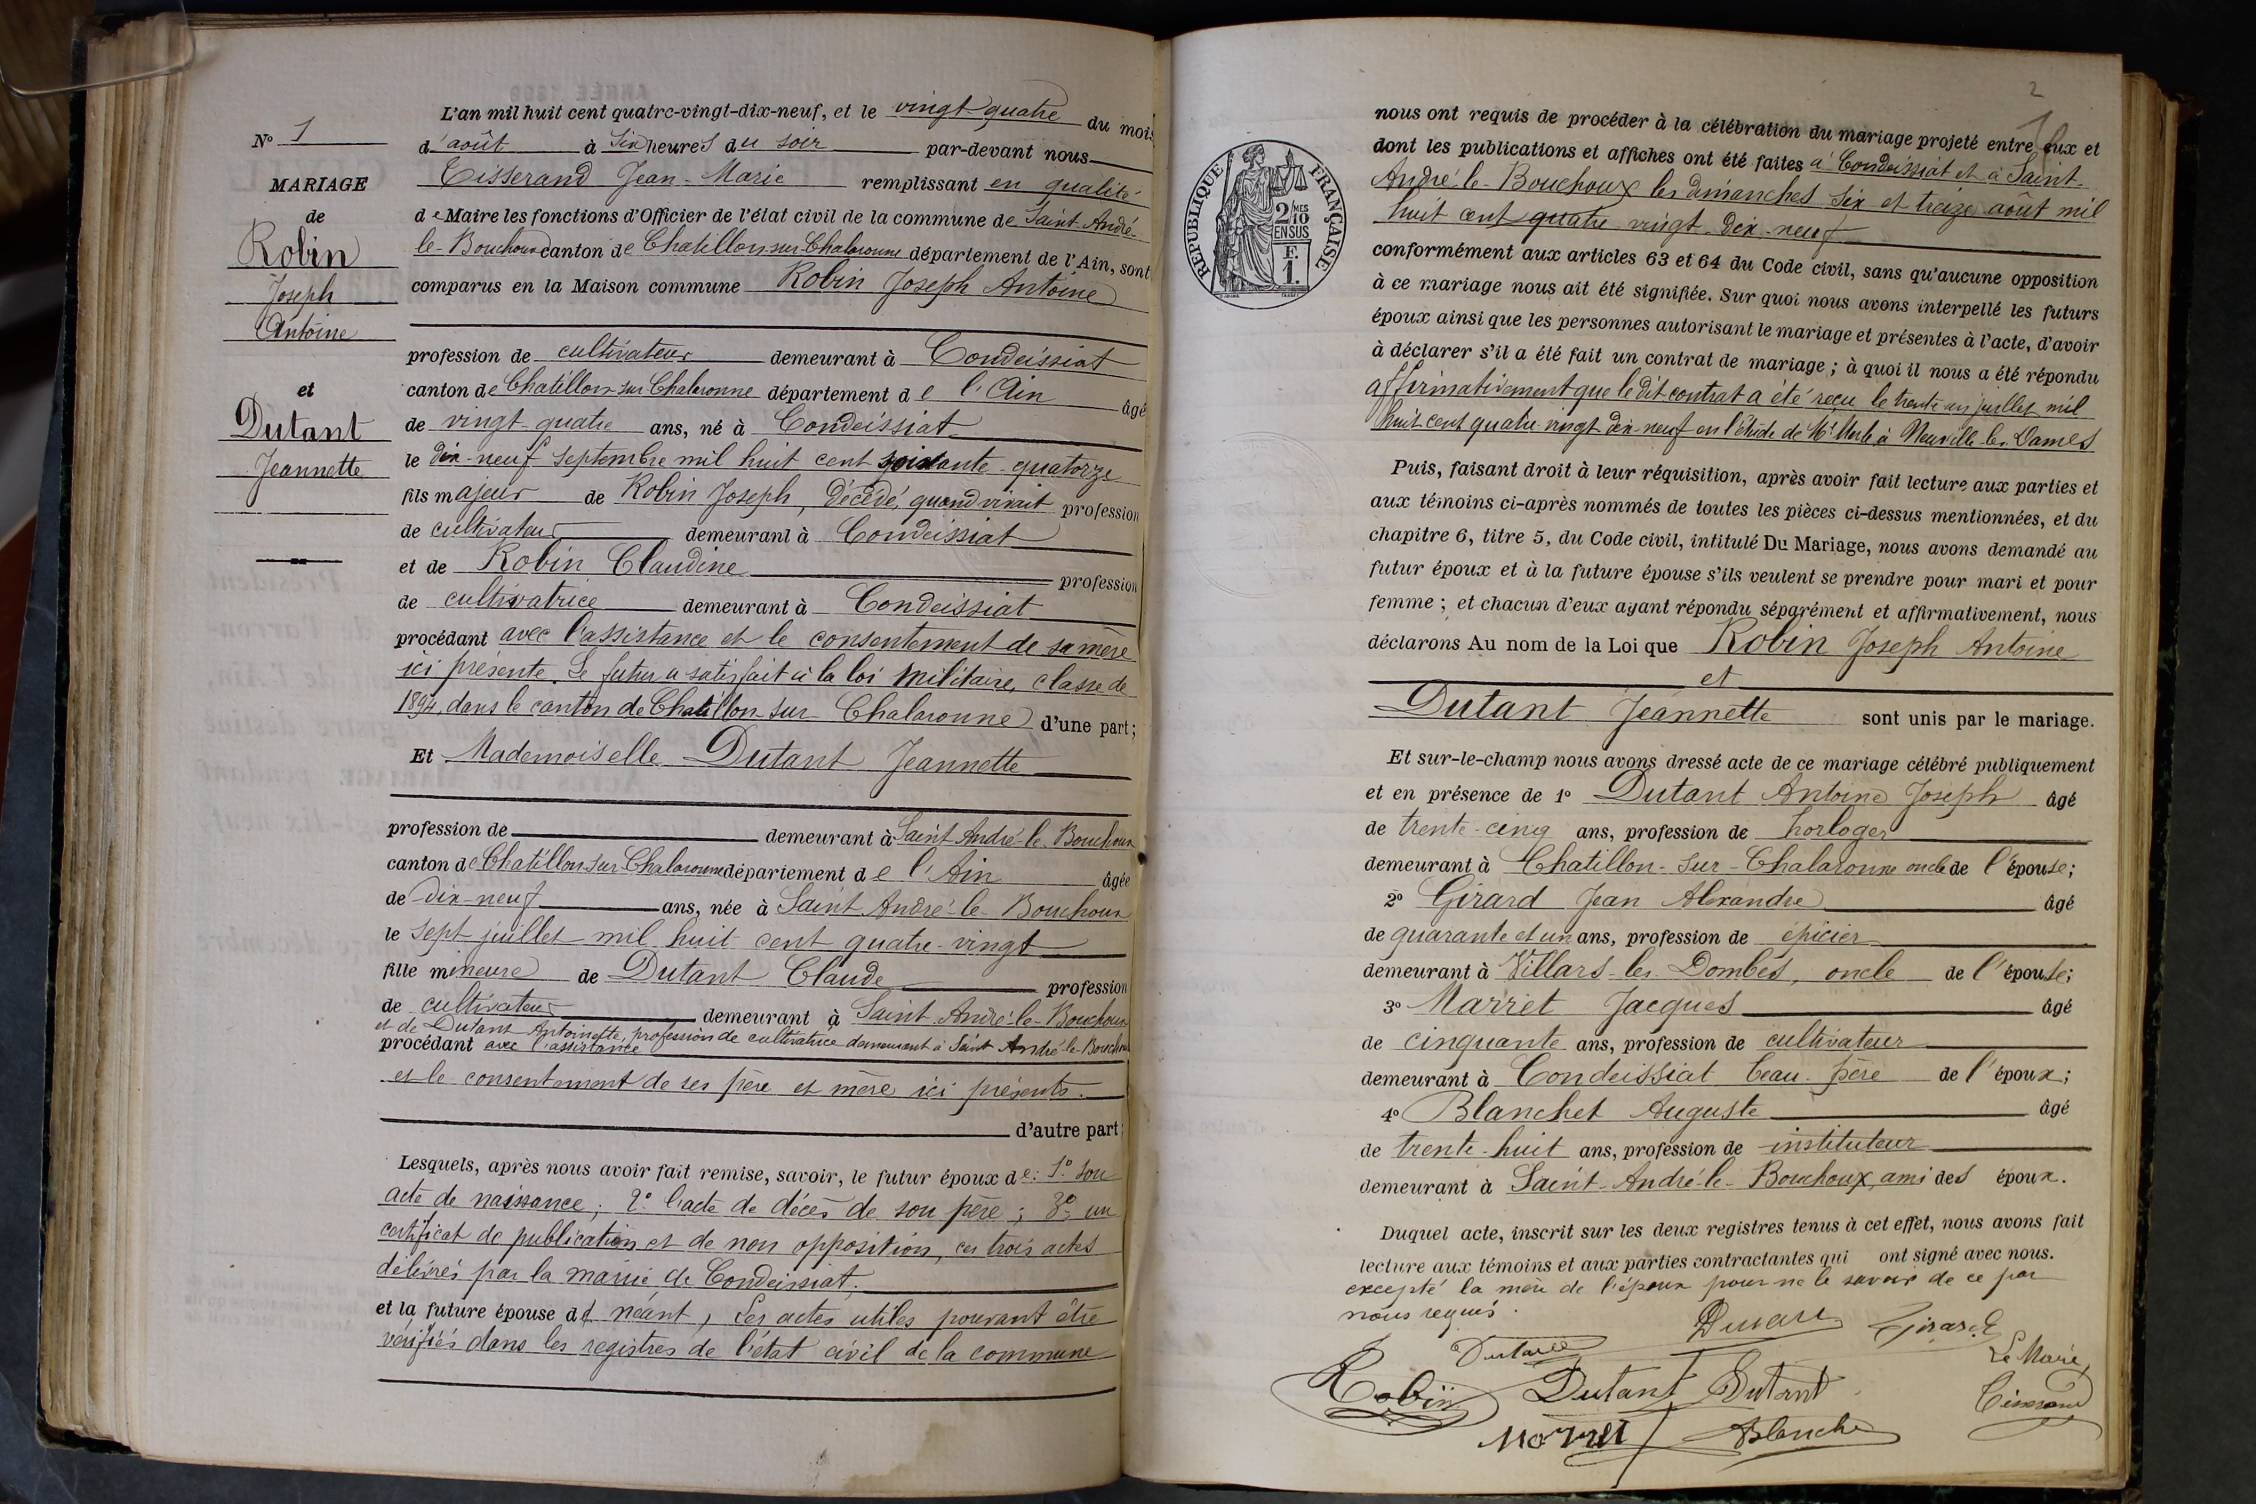 L'an mil huit cent quatre-vingt-dix-neuf, et le vingt-quatre du mois
N° 1
d'août à six heures du soir par-devant nous
MARIAGE
Tisserand Jean-Marie remplissant en qualité
de
de Maire les fonctions d'Officier de l'état civil de la commune de Saint-André-
Robin
le-Bouchoux canton de Chatillon sur Chalaronne département de l'Ain, sont
Joseph
comparus en la Maison commune Robin Joseph Antoine
Antoine
profession de cultivateur demeurant à Condeissiat
et
canton de Chatillon-sur-Chalaronne département de l'Ain âgé
Dutant
de vingt-quatre ans, né à Condeissiat
Jeannette
le dix-neuf septembre mil huit cent soixante-quatorze
fils majeur de Robin Joseph, décédé, quand vivait profession
de cultivateur demeurant à Condeissiat
et de Robin Claudine profession
de cultivatrice demeurant à Condeissiat
procédant avec l'assistance et le consentement de sa mère
ici présente. Le futur a satisfait à la loi militaire, classe de
1894, dans le canton de Chatillon-sur Chalaronne d'une part;
Et Mademoiselle Dutant Jeannette
profession de demeurant à Saint André-le-Bouchoux
canton de Chatillon sur Chalaronne département de l'Ain âgée
de dix-neuf ans, née à Saint André-le-Bouchoux
le sept juillet mil huit cent quatre-vingt
fille mineure de Dutant Claude profession
de cultivateur demeurant à Saint André-le-Bouchoux
et de Dutant Antoinette, profession de cultivatrice demeurant à Saint André-le-Bouchoux
procédant avec l'assistance
et le consentement de ses père et mère ici présents.
d'autre part;
Lesquels, après nous avoir fait remise, savoir, le futur époux de: 1° son
acte de naissance; 2° l'acte de décès de son père; 3° un
certificat de publication et de non opposition, ces trois actes
délivrés par la mairie de Condeissiat;
et la future épouse de néant, Les actes utiles pouvant être
vérifiés dans les registres de l'état civil de la commune
2
RÉPUBLIQUE FRANÇAISE
2/10 MES
EN SUS
F.
1.
nous ont requis de procéder à la célébration du mariage projeté entre eux et
dont les publications et affiches ont été faites à Condeissiat et à Saint-
André-le-Bouchoux les dimanches six et treize août mil
huit cent quatre vingt-dix-neuf
conformément aux articles 63 et 64 du Code civil, sans qu'aucune opposition
à ce mariage nous ait été signifiée. Sur quoi nous avons interpellé les futurs
époux ainsi que les personnes autorisant le mariage et présentes à l'acte, d'avoir
à déclarer s'il a été fait un contrat de mariage; à quoi il nous a été répondu
affirmativement que le dit contrat a été reçu le trente un juillet mil
huit cent quatre vingt dix neuf en l'étude de Mᵉ à Neuville les Dames
Puis, faisant droit à leur réquisition, après avoir fait lecture aux parties et
aux témoins ci-après nommés de toutes les pièces ci-dessus mentionnées, et du
chapitre 6, titre 5, du Code civil, intitulé Du Mariage, nous avons demandé au
futur époux et à la future épouse s'ils veulent se prendre pour mari et pour
femme; et chacun d'eux ayant répondu séparément et affirmativement, nous
déclarons Au nom de la Loi que Robin Joseph Antoine
et
Dutant Jeannette sont unis par le mariage.
Et sur-le-champ nous avons dressé acte de ce mariage célébré publiquement
et en présence de 1° Dutant Antoine Joseph âgé
de trente-cinq ans, profession de horloger
demeurant à Chatillon-sur-Chalaronne oncle de l'épouse;
2° Girard Jean Alexandre âgé
de quarante et un ans, profession de épicier
demeurant à Villars-les-Dombes, oncle de l'épouse;
3° Marret Jacques âgé
de cinquante ans, profession de cultivateur
demeurant à Condeissiat beau-père de l'époux;
4° Blanchet Auguste âgé
de trente-huit ans, profession de instituteur
demeurant à Saint-André-le-Bouchoux, ami des époux.
Duquel acte, inscrit sur les deux registres tenus à cet effet, nous avons fait
lecture aux témoins et aux parties contractantes qui ont signé avec nous.
excepté la mère de l'époux pour ne le savoir de ce par
nous requis.
Girard
Le Maire,
Robin Dutant Dutant Tisserand
Marret Blanchet